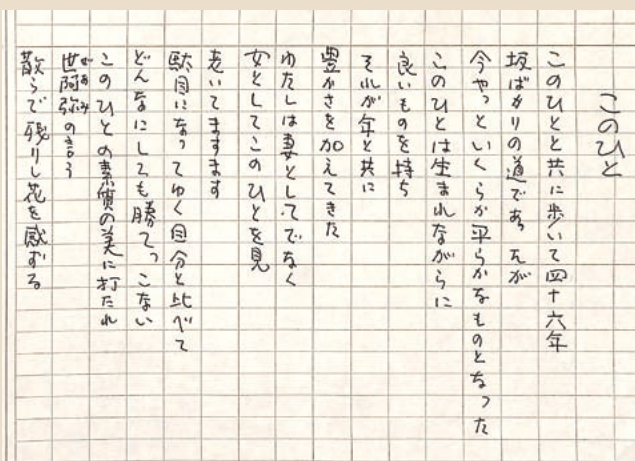 このひと
このひとと共に歩いて四十六年
坂ばかりの道であったが
今やっといくらか平らかなものとなった
このひとは生まれながらに
良いものを持ち
それが年と共に
豊かさを加えてきた
わたしは妻としてでなく
女としてこのひとを見
老いてますます
駄目になってゆく自分と比べて
どんなにしても勝てっこない
このひとの素質の美に打たれ
世阿弥の言う
散らで残りし花を感ずる